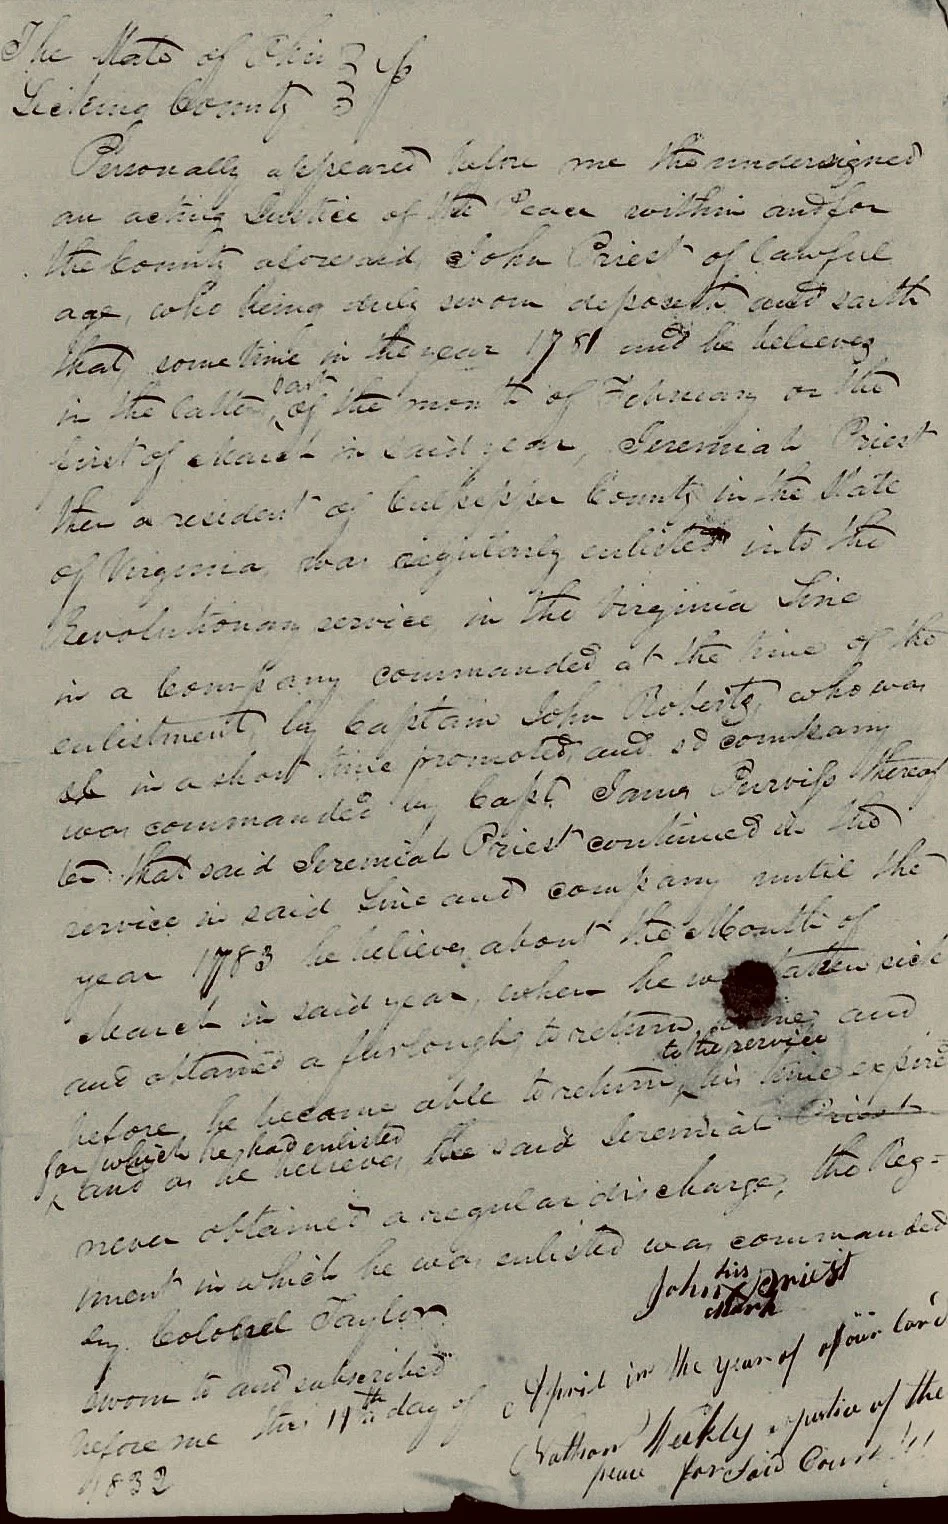 The State of Ohio } ss
Licking County }
Personally appeared before me the undersigned
an acting Justice of the Peace within and for
the County aforesaid, John Priest of lawful
age, who being duly sworn deposeth and saith
that, some time in the year 1781 and he believes
in the latter part of the month of February or the
first of March in said year, Jeremiah Priest
then a resident of Culpepper County in the State
of Virginia was regularly enlisted into the
Revolutionary service in the Virginia Line
in a Company commanded at the time of the
enlistment, by Captain John Roberts, who was
in a short time promoted, and sd company
was commanded by Capt. James Purviss thereaf
ter that said Jeremiah Priest continued in the
service in said Line and company until the
year 1783 he believes about the Month of
March in said year, when he was taken sick
and obtained a furlough to return home and
before he became able to return to the service, his time expired
for which he had enlisted
and as he believes the said Jeremiah Priest
never obtained a regular discharge, the Reg=
iment in which he was enlisted was commanded
by Colonel Taylor
John his X mark Priest
Sworn to and subscribed
before me this 11th day of April in the year of our lord
1832
Nathan Weekly a justice of the
peace for said County